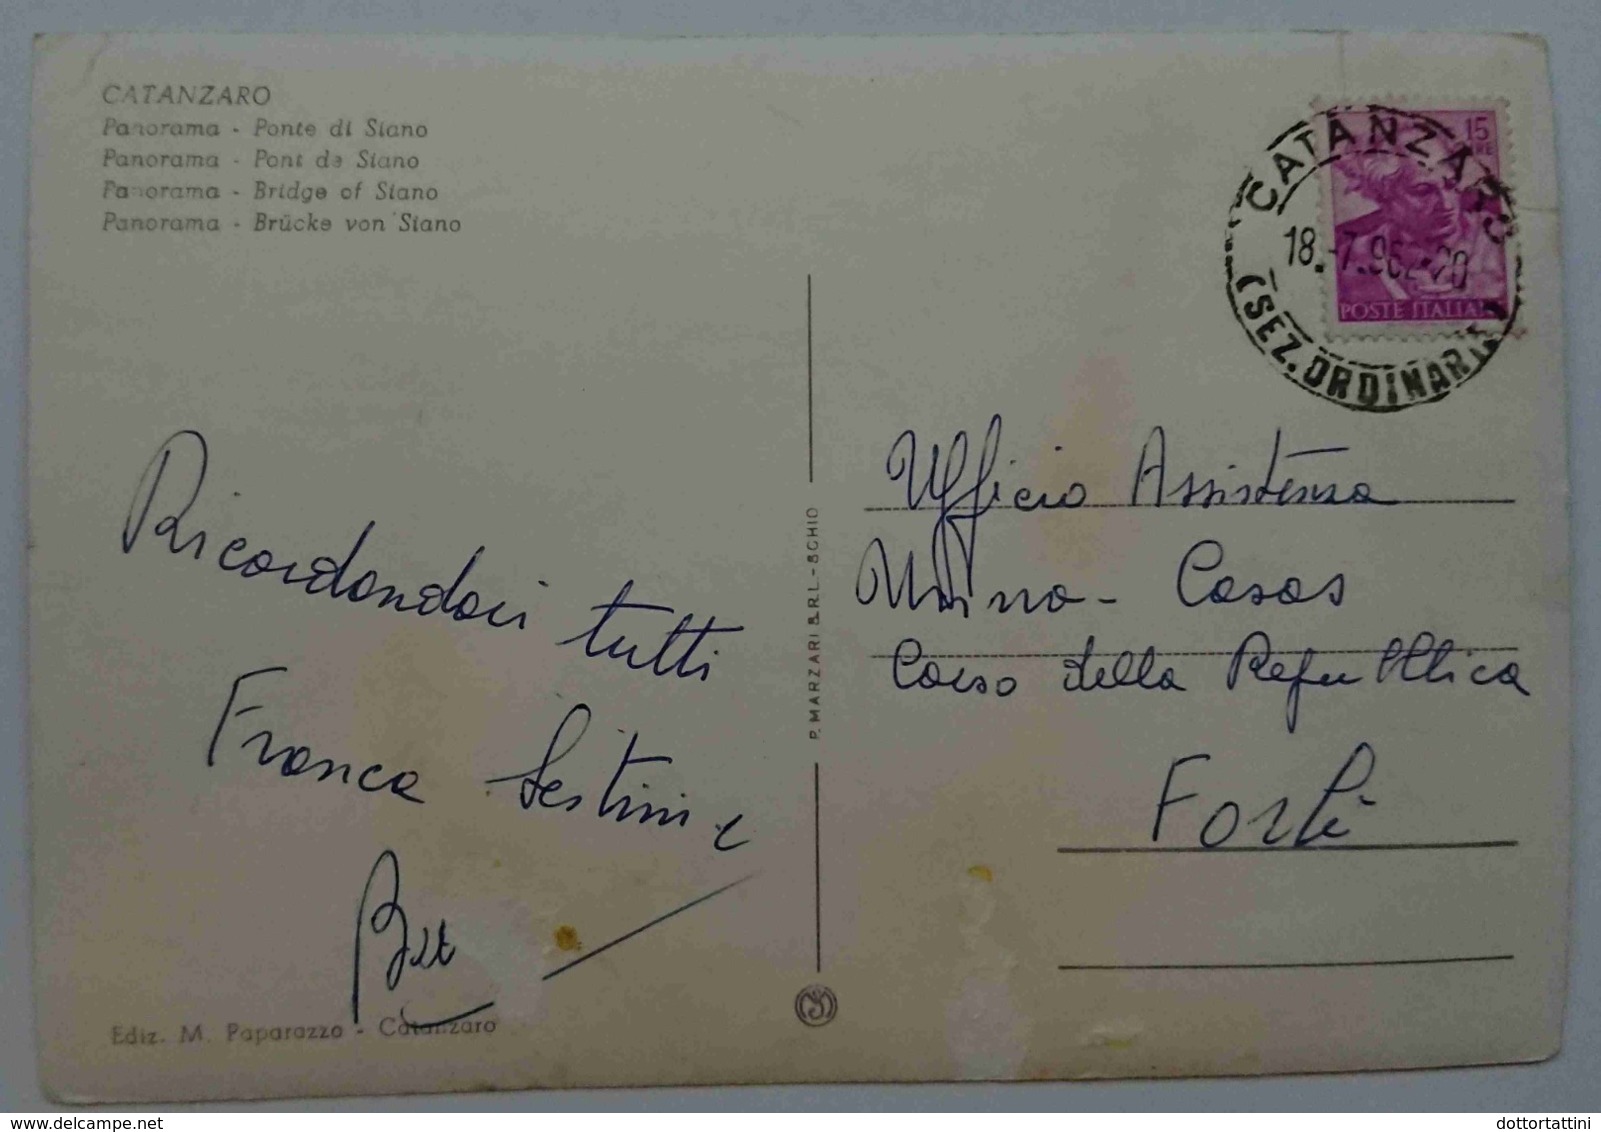 CATANZARO
Panorama - Ponte di Siano
Panorama - Pont de Siano
Panorama - Bridge of Siano
Panorama - Brücke von Siano
15
LIRE
POSTE ITALIANE
CATANZARO
18.-7.962-20
(SEZ. ORDINARIE)
Ricordandovi tutti
Franca Sestini e
P. MARZARI S.R.L. - SCHIO
Ufficio Assistenza
Corso della Repubblica
Forlì
Ediz. M. Paparazzo - Catanzaro
delcampe.net
dottortattini